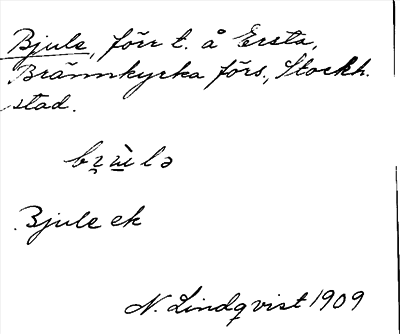 Bjule, förr t. å Ersta,
Brännkyrka förs., Stockh.
stad.
Bjule ek
N. Lindqvist 1909